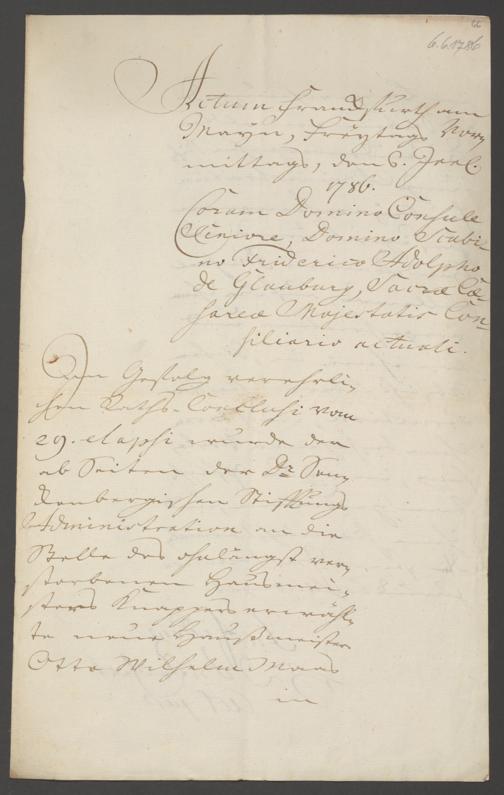 66
6.6.1786
Actum Franckfurth am
Mayn, Freytags Vor-
mittags, den 6.
1786.
Coram Domino Consule
Seniore, Domino Scabi-
no Friderico Adolpho
de Glauburg, Sacræ Cæ-
sareæ Majestatis Con-
siliario actuali.
In Gefolg verehrli-
chen Raths-Conclusi vom
29. elapsi wurde der
ab Seiten der Dr. Sen-
kenbergischen Stifftungs
Administration an die
Stelle des ohnlängst ver-
storbenen Hausmei-
sters Knappers erwähl-
te neue Haußmeister
Otto Wilhelm Maas
in